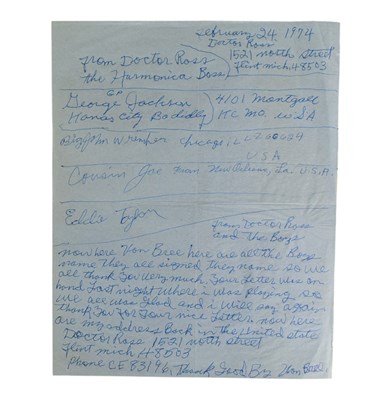 February 24, 1974
Doctor Ross
1521 north Street
Flint mich. 48503
From Doctor Ross
the Harmonica Boss
George Jackson
Kansas City Bo diddly
4101 Montgall
KC MO. USA
Big John Wrencher Chicago, ILL 60624
U S A
Cousin Joe from New Orleans, La. U.S.A.
Eddie Taylor
From Doctor Ross
and the Boys
now here Von Bree here are all the Boys
name they all signed they name so we
all thank you very much your Letter was on
hand Last night where i was playing, so
we all was Glad and i will say again
thank you For your nice Letter now here
are my address Back in the united state
Doctor Ross 1521 north street
Flint mich 48503
Phone CE 83196, Thank Good By Von Bree.